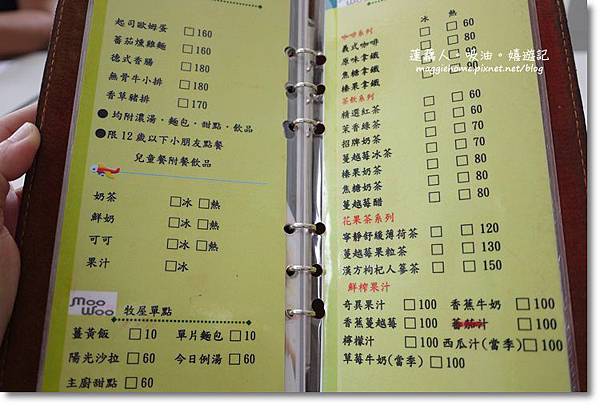 起司歐姆蛋 □160
蕃茄燻雞麵 □160
德式香腸 □180
無骨牛小排 □180
香草豬排 □170
●均附濃湯、麵包、甜點、飲品
●限12歲以下小朋友點餐
兒童餐附餐飲品
奶茶 □冰 □熱
鮮奶 □冰 □熱
可可 □冰 □熱
果汁 □冰
moo woo 牧屋單點
薑黃飯 □10 單片麵包□10
陽光沙拉 □60 今日例湯□60
主廚甜點 □60
咖啡系列 冰 熱
義式咖啡 □ □ 60
原味拿鐵
焦糖拿鐵
榛果拿鐵 □ □ 80
茶飲系列
精選紅茶 □ □ 60
茉香綠茶 □ □ 60
招牌奶茶 □ □ 70
蔓越莓冰茶 □ 80
榛果奶茶 □ □ 80
焦糖奶茶 □ □ 80
蔓越莓醋 □ 80
花果茶系列
寧靜舒緩薄荷茶 □ □ 120
蔓越莓果粒茶 □ □ 130
漢方枸杞人蔘茶 □ □ 150
鮮榨果汁
奇異果汁 □100 香蕉牛奶 □100
香蕉蔓越莓 □100 蕃茄汁 □100
檸檬汁 □100 西瓜汁(當季)□100
草莓牛奶(當季)□100
maggiehome.pixnet.net/blog